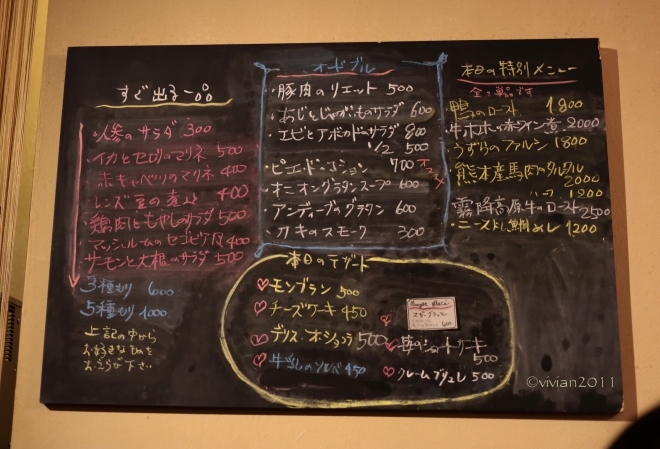 すぐ出る一品
人参のサラダ 300
イカとセロリのマリネ 500
赤キャベツのマリネ 400
レンズ豆の煮込 400
鶏肉ともやしのサラダ 500
マッシュルームのセゴビア風 400
サーモンと大根のサラダ 500
3種もり 600
5種もり 1000
上記の中から
お好きなものを
お選び下さい
オードブル
・豚肉のリエット 500
・あじとじゃがいものサラダ 600
・エビとアボカドのサラダ 800
1/2 500
・ピエ・ド・コション 700 オススメ
・オニオングラタンスープ 600
・アンディーブのグラタン 600
・カキのスモーク 300
本日の特別メニュー
全て単品です
鴨のロースト 1800
牛ホホの赤ワイン煮 2000
うずらのファルシ 1800
熊本産馬肉のタルタル
2000
ハーフ
霧降高原牛のロースト 2500
ニース 鯛めし 1200
本日のデザート
モンブラン 500
チーズケーキ 450
デリス・オ・ショコラ 500
牛乳のソルベ 450
苺のショートケーキ
500
クレームブリュレ 500
600
©vivian2011